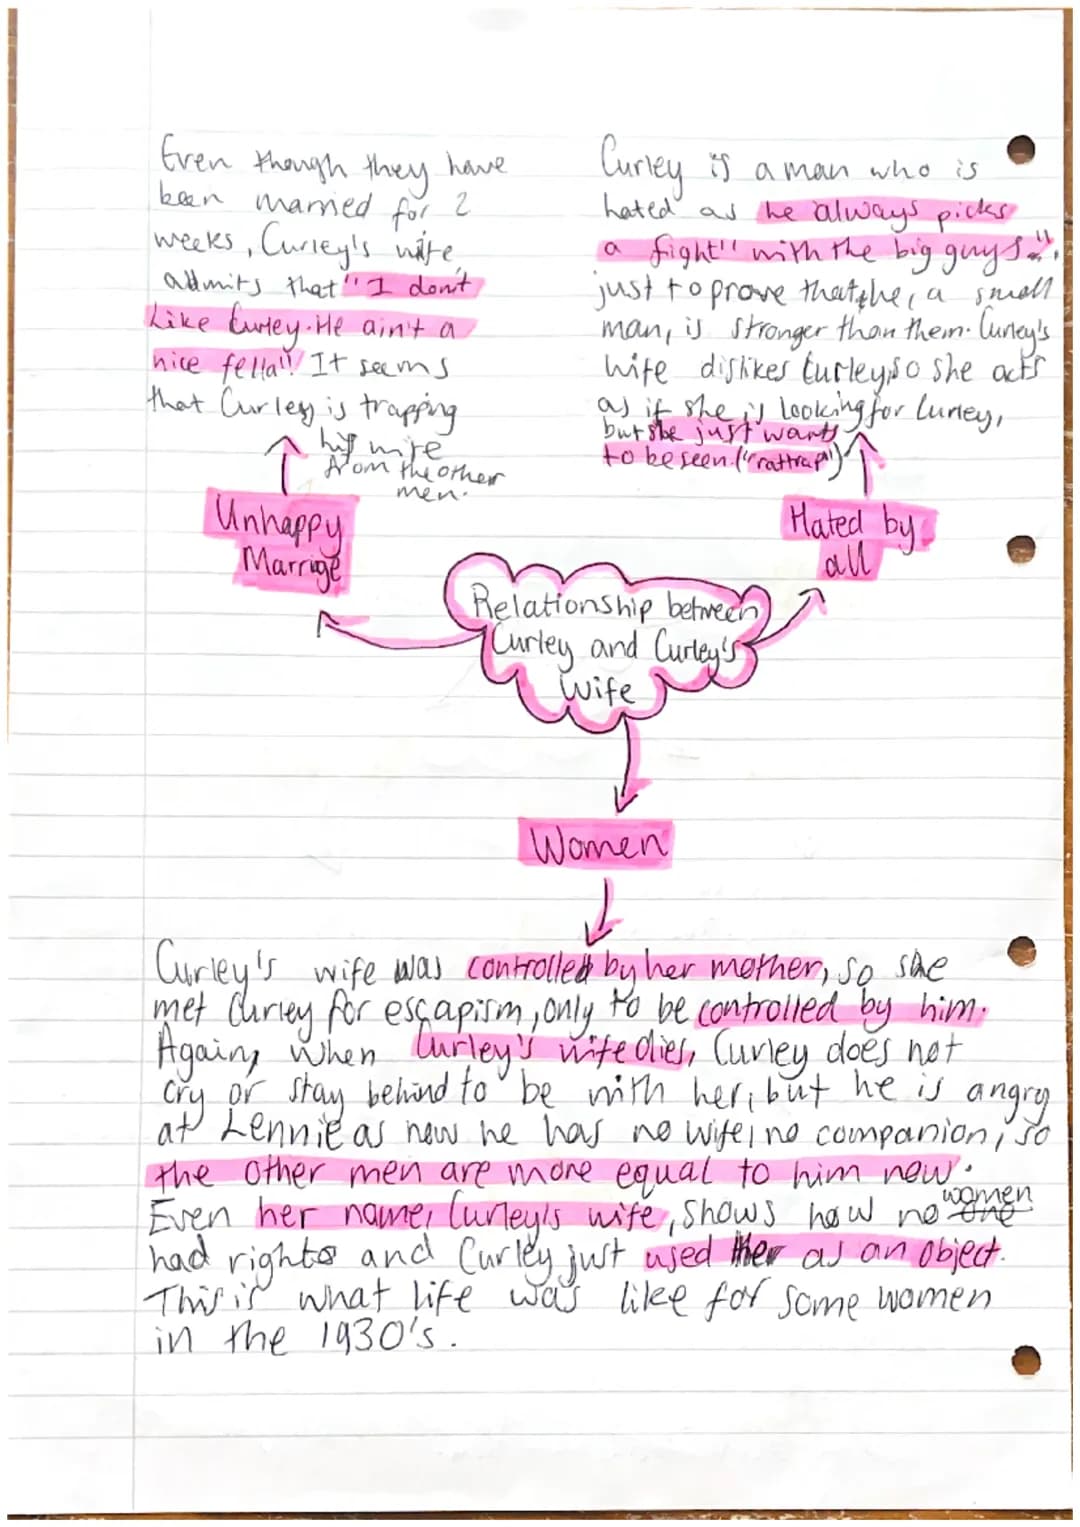 Even though they have
been married for 2
weeks, Curley's wife
admits that "I don't
like Curley. He ain't a
nice fella"! It seems
that Curley is trapping
his wife
from the other
men.
Curley is a man who is
hated as he always picks
a fight" with the big guys".,
just to prove that he, a small
man, is stronger than them. Curley's
wife dislikes Curley, so she acts
as if she is looking for Curley,
but she just wants
to be seen. ("rattrap")
Unhappy
Marrige
Hated by
all
Relationship between
Curley and Curley's
Wife
Women
Curley's wife was controlled by her mother, so she
met Curley for escapism, only to be controlled by him.
Again, when Curley's wife dies, Curley does not
cry or stay behind to be with her, but he is angry
at Lennie as now he has no wife, no companion, so
the other men are more equal to him now.
Even her name, Curley's wife, shows how no one women
had rights and Curley just used her as an object.
This is what life was like for some women
in the 1930's.